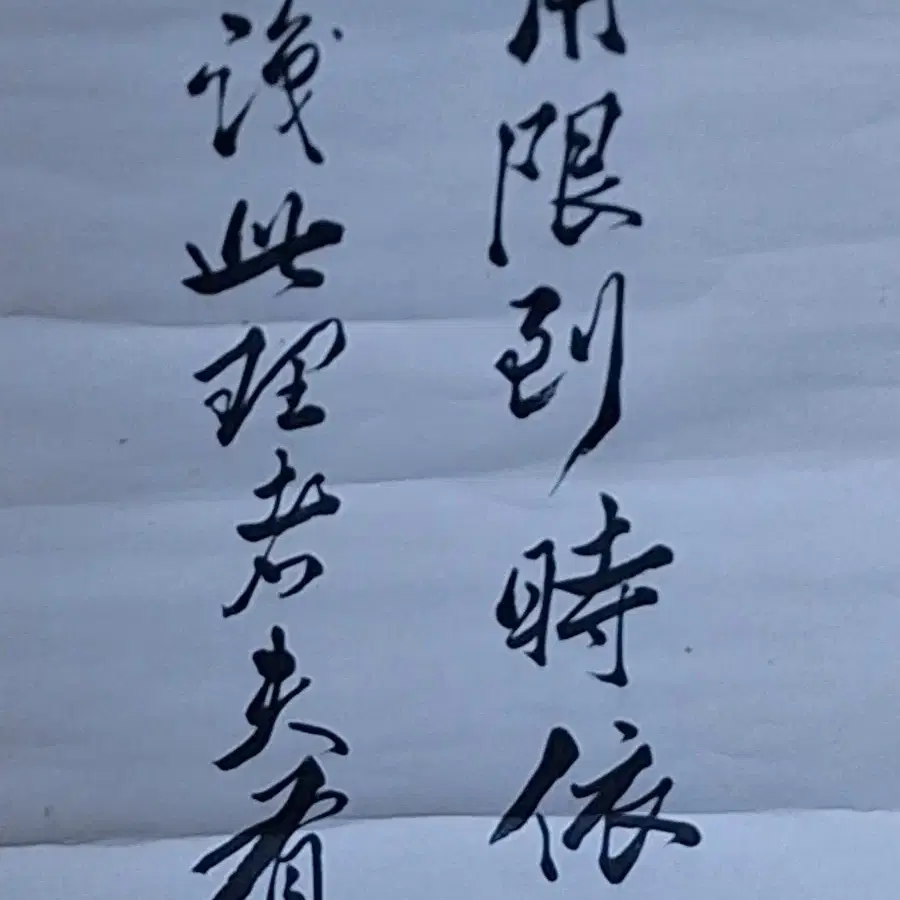 限到時依
識此理者